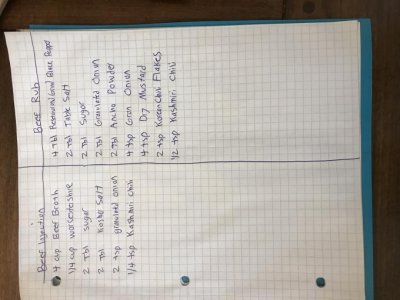 Beef Injection
4 cup Beef Broth
1/4 cup
2 Tbl sugar
2 Tbl Kosher Salt
2 tsp granulated onion
1/4 tsp Kashmiri Chili
Beef Rub
4 Tbl Restaurant Black Pepper
2 Tbl Table Salt
2 Tbl Sugar
2 Tbl Granulated Onion
2 Tbl Ancho Powder
4 tsp Onion
4 tsp Dry Mustard
2 tsp Korean Chili Flakes
1/2 tsp Kashmiri Chili